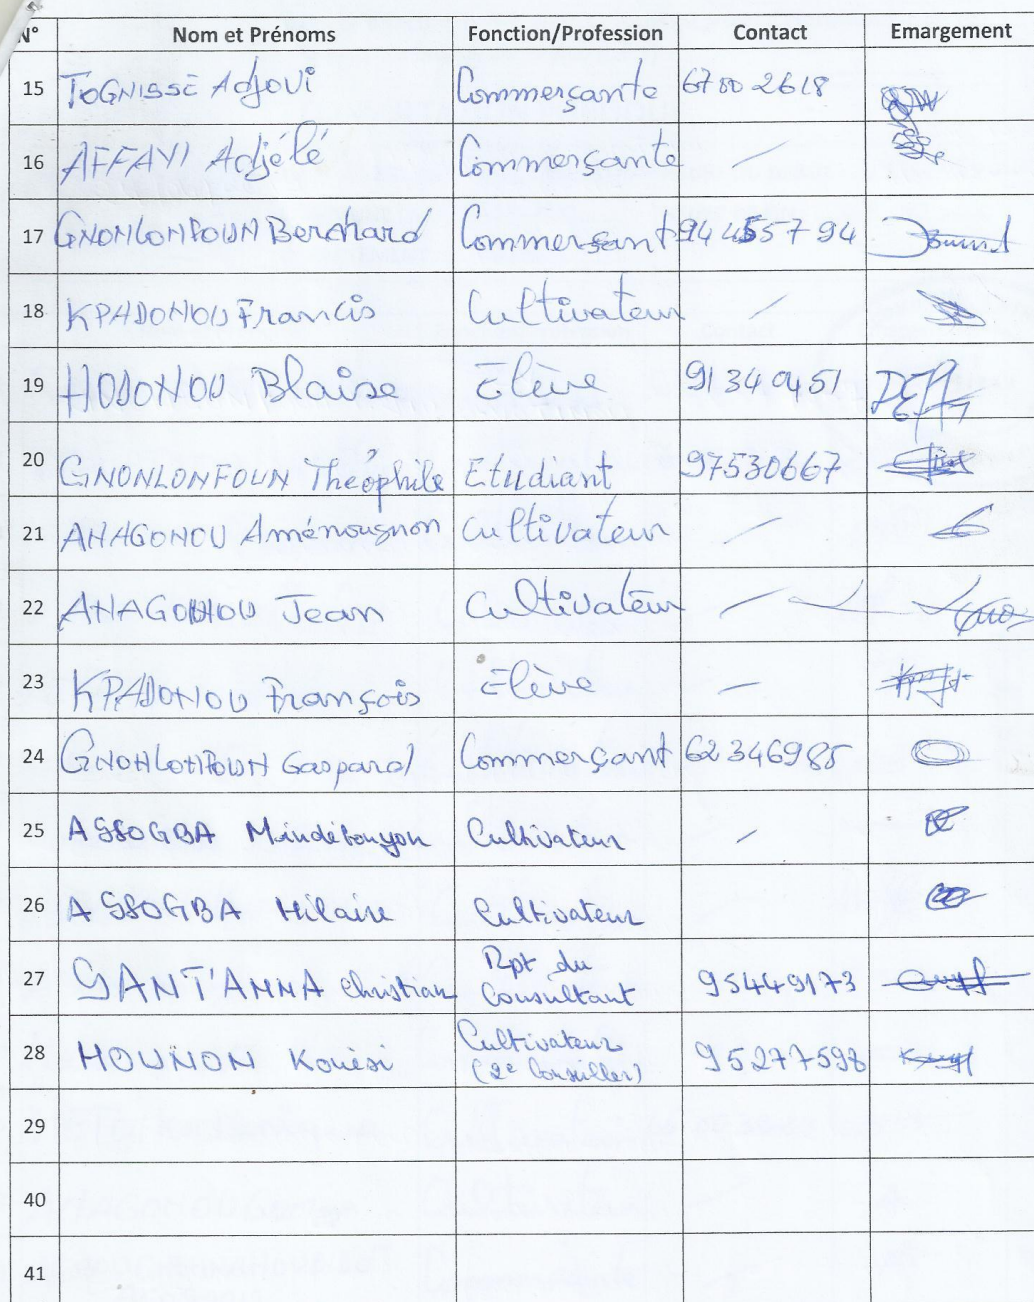 N° Nom et Prénoms Fonction/Profession Contact Emargement
15 TOGNISSE Adjovi Commerçante 67002618
16 AFFAVI Adjélé Commerçante /
17 GNONLONFOUN Berchard Commerçant 94455794
18 KPADONOU Francis Cultivateur /
19 HODONOU Blaise Elève 91340451
20 GNONLONFOUN Théophile Etudiant 97530667
21 AHAGONOU Aménougnon Cultivateur /
22 AHAGONOU Jean Cultivateur /
23 KPADONOU François Elève /
24 GNONLONFOUN Gaspard Commerçant 62346985
25 ASSOGBA Cultivateur /
26 ASSOGBA Hilaire Cultivateur
27 SANT'ANNA Christian Rpt du
Consultant 95449173
28 HOUNON Kouessi Cultivateur
(2e Conseiller) 95277598
29
40
41